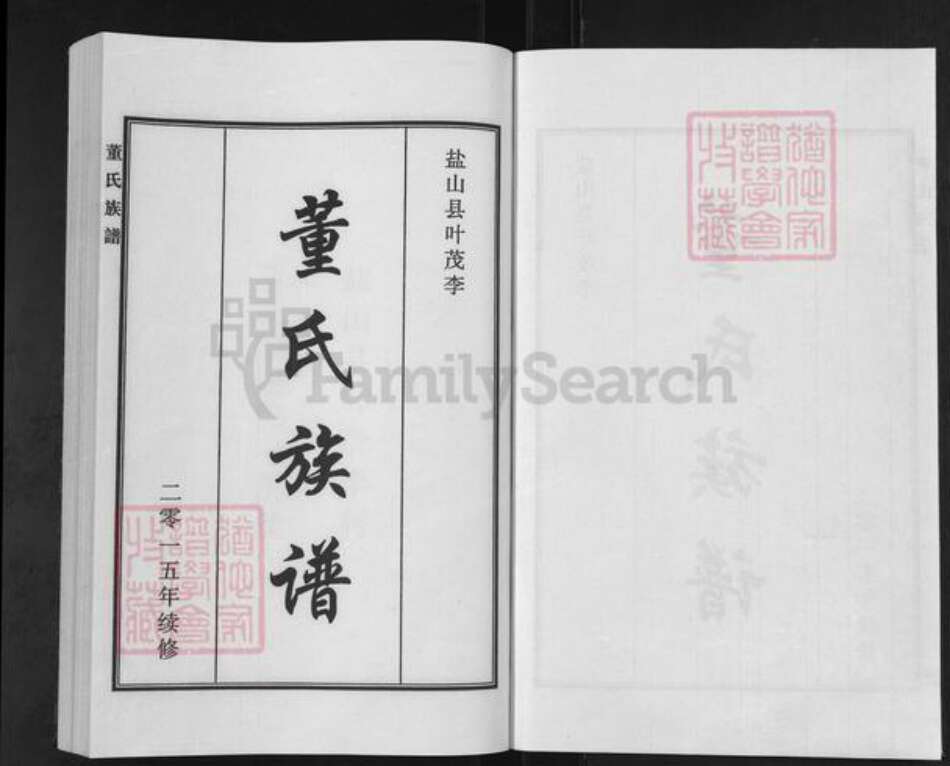 盐山县叶茂李
董氏族谱
二零一五年续修
董氏族譜
猶他家
譜學會
收藏
猶他家
譜學會
收藏
FamilySearch